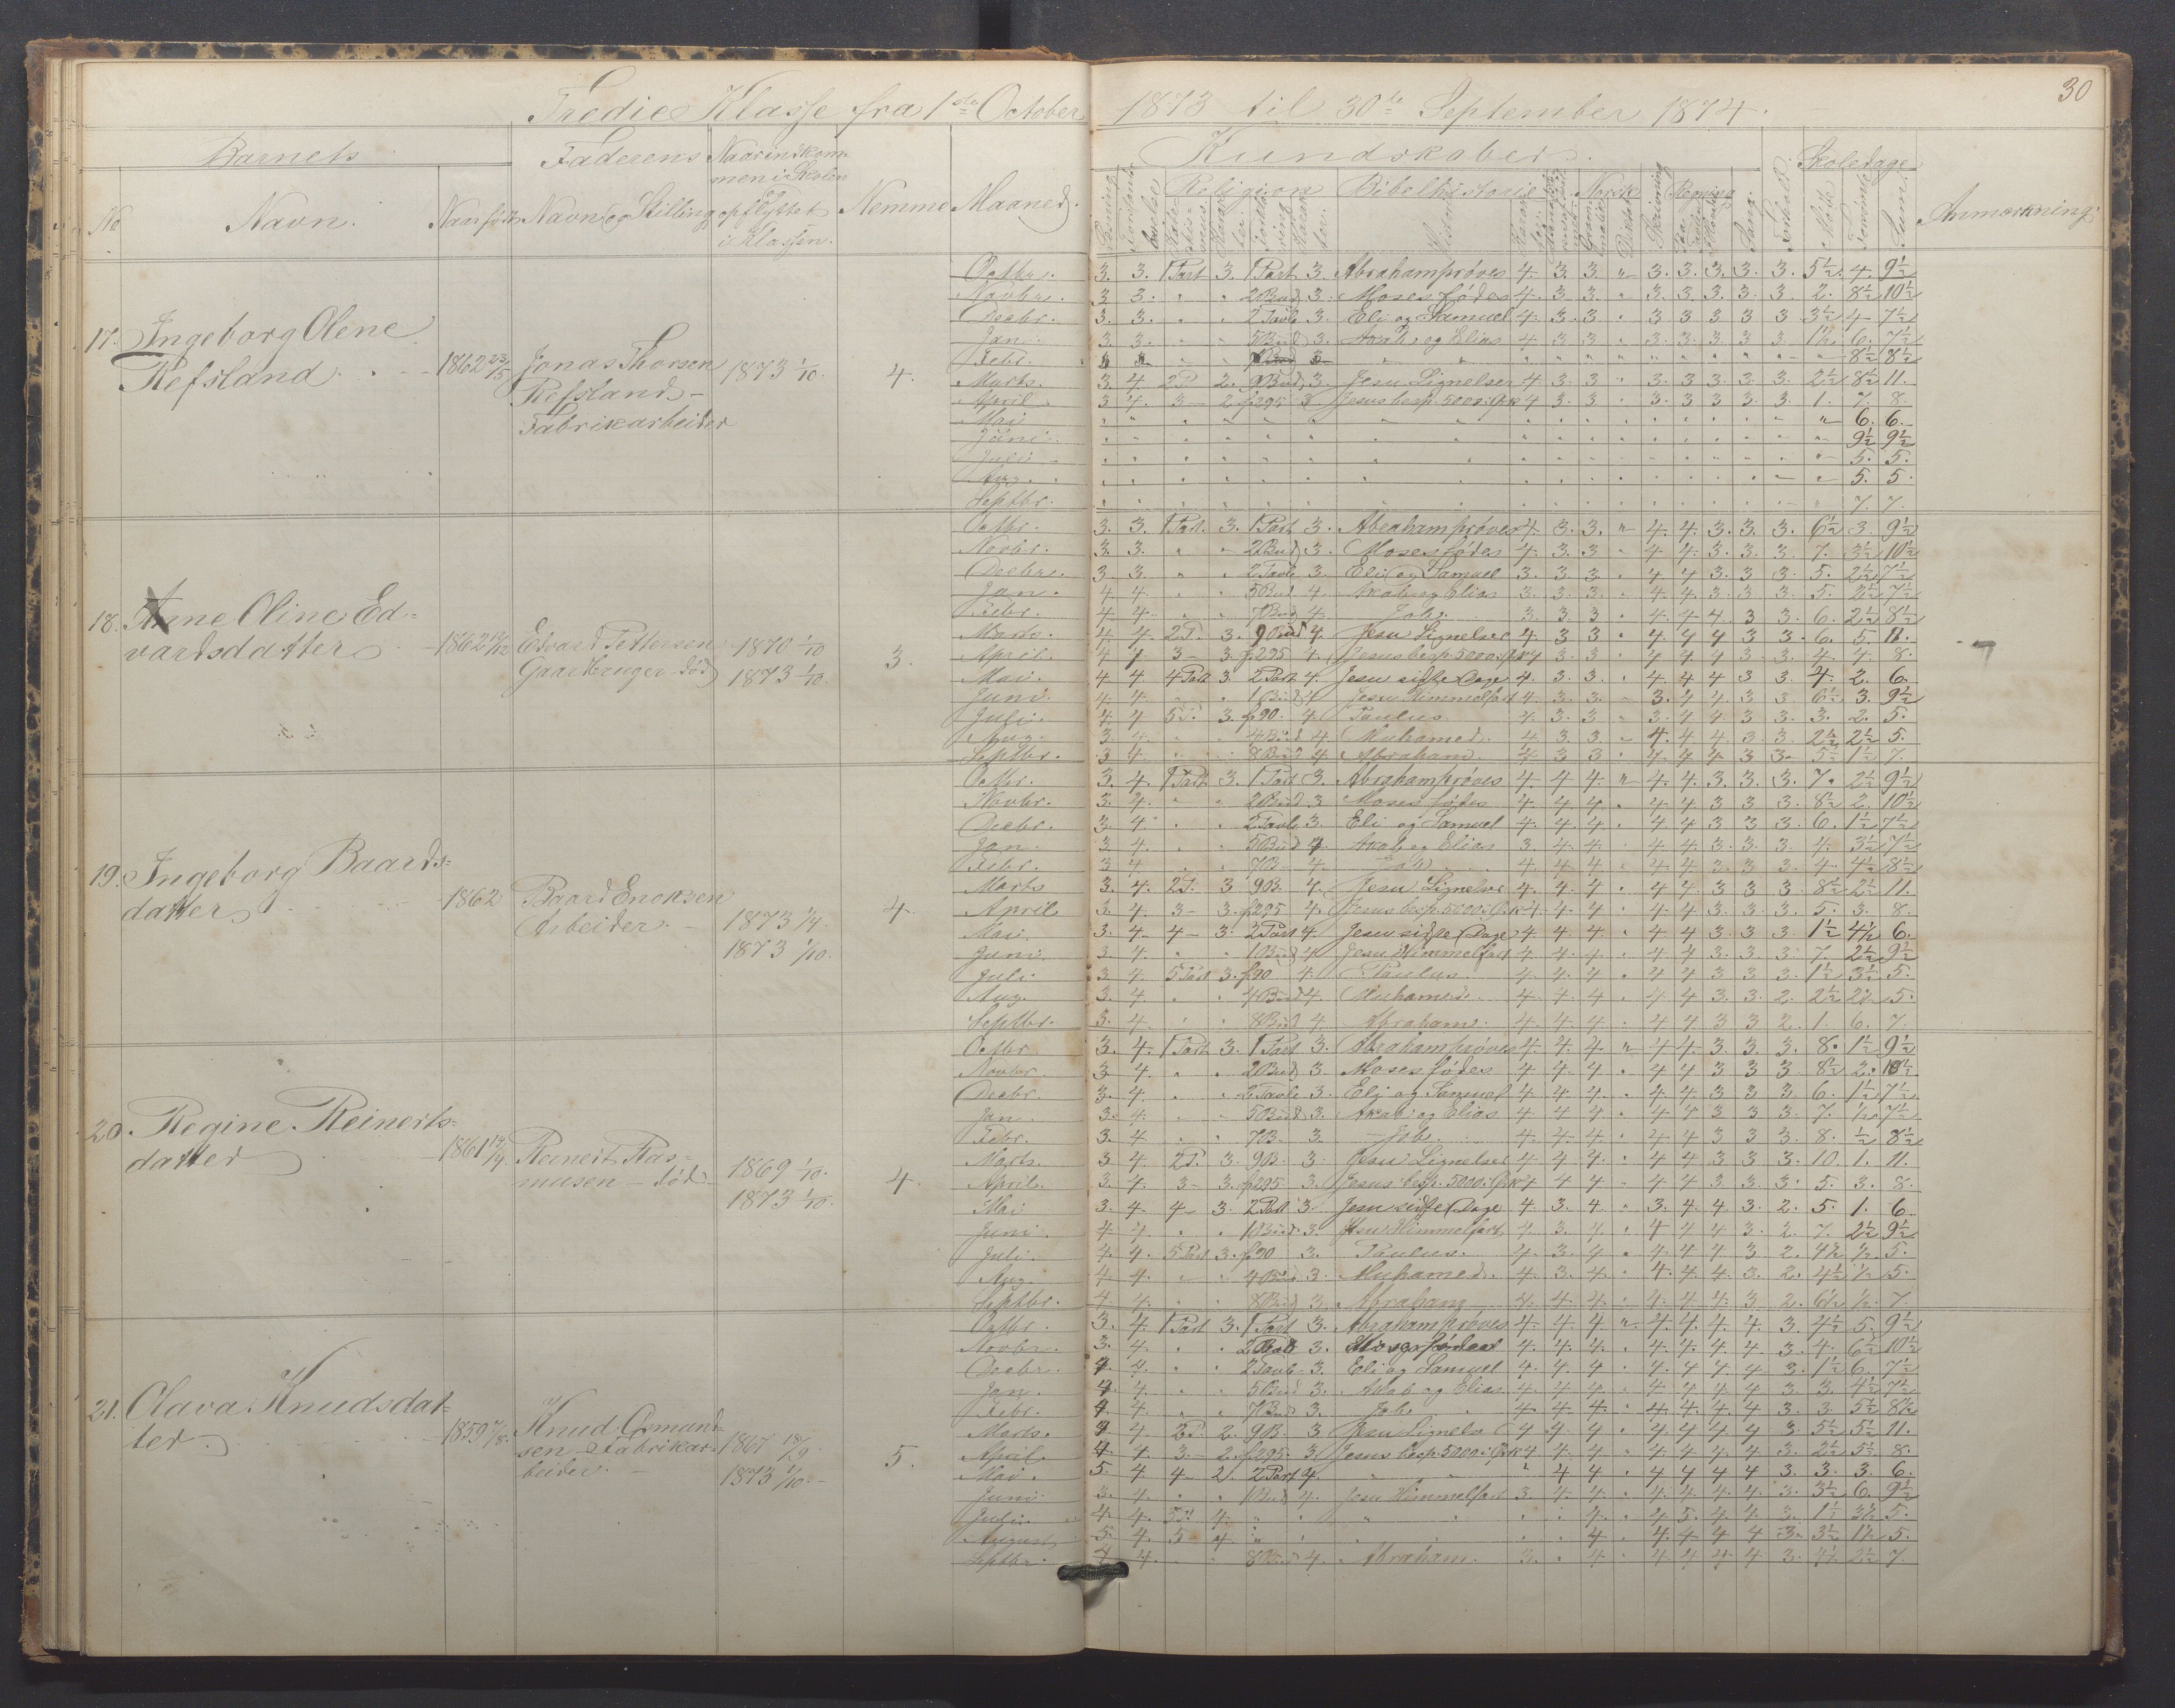 30
Tredie Klasse fra 1ste October 1873 til 30te September 1874.
Barnets Faderens Naar indkommen i Skolen og opflyttet i Klassen. Nemme Maaned. Kundskaber. Skoledage Anmærkning.
No Navn. Naar født Navn og Stilling Religion Bibelhistorie Norsk Regning Skrivning Sang. Forhold. Mødt Forsømte Sum.
17. Ingeborg Olene Refsland. 1862 23/5 Jonas Thorsen Refsland - Fabrikarbeider 1873 1/10. 4.
Octbr. 3. 3. 1 Part 3. 1 Part 3. Abraham prøves 4. 3. 3. " 3. 3. 3. 3. 3. 5½ 4. 9½
Novbr. 3 3. " " 2 Bud 3. Moses fødes 4. 3 3. " 3. 3 3. 3. 3 2. 8½ 10½
Decbr. 3. 3. " " 2 Tavle 3. Eli og Samuel 4. 3. 3 " 3 3 3 3 3 3½ 4 7½
Jan. 3 3. " " 5 Bud 3. Akab og Elias 4 3 3 " 3. 3. 3. 3. 3. 1½ 6. 7½
Febr. 8½ 8½
Marts. 3 4 2 P. 2. 9 Bud 3. Jesu Lignelser 4 3 3 " 3. 3 3 3. 3. 2½ 8½ 11.
April. 3 4. 3 - 2. f 295 3 Jesus besp. 5000 i Ørk 4 3. 3 " 3. 3 3 3 3. 1. 7. 8.
Mai " 6. 6.
Juni. " 9½ 9½
Juli " 5. 5.
Aug. " 5. 5.
Septbr. " 7. 7.
18. Anne Oline Edvardsdatter 1862 Edvard Pettersen Gaardbruger - død 1870 1/10 1873 1/10. 3.
Octbr. 3. 3. 1 Part. 3. 1 Part 3. Abraham prøves 4. 3. 3. " 4. 4. 3. 3. 3. 6½ 3. 9½
Novbr. 3. 3. " " 2 Bud 3. Moses fødes 4. 3. 3 " 4. 4. 3. 3. 3. 7. 3½ 10½
Decbr. 3 3. " " 2 Tavle 3. Eli og Samuel 3. 3. 3. " 4 4 3. 3 3. 5. 2½ 7½
Jan. 4 4. " " 5 Bud 4. Akab og Elias 3. 3. 3. " 4. 4. 3. 3. 3. 5. 2½ 7½
Febr. 4 4. " " 7 Bud 4. Job. 3. 3. 3 " 4. 4. 4 3 3. 6. 2½ 8½
Marts. 4 4. 2 P. 3. 9 Bud 4. Jesu Lignelser 4. 3 3 " 4. 4 4 3 3. 6. 5. 11.
April. 4 4. 3 - 3. f 295 4. Jesus besp. 5000 i Ørk 4 3. 3 " 4 4 4 3. 3. 4. 4. 8.
Mai. 4 4 4 Part 3. 2 Part 4. Jesu sidste Dage 4. 3. 3. " 4 4 4 3 3. 4. 2. 6.
Juni. 4 4. " " 1 Bud 4. Jesu Himmelfart 4. 3. 3. " 3. 4 4 3. 3. 6½ 3. 9½
Juli. 4 4 5 P. 3. f 90. 4. Paulus. 4. 3. 3 " 3. 4 4 3 3. 3. 2. 5.
Aug. 3 4. " " 4 Bud 4 Muhamed. 4 3 3 " 4. 4. 4 3. 3 2½ 2½ 5.
Septbr. 3 4. " " 8 Bud 4 Abraham 4 3 3 " 4. 4 4 3 3. 5½ 1½ 7.
19. Ingeborg Baardsdatter 1862 Baard Enoksen Arbeider. - 1873 1/4. 1873 1/10. 4.
Octbr. 3. 4. 1 Part. 3. 1 Part 3. Abraham prøves 4. 4. 4. " 4. 4. 3. 3. 3. 7. 2½ 9½
Novbr. 3. 4. " " 2 Bud 3 Moses fødes 4. 4. 4. " 4 4 3 3 3. 8½ 2. 10½
Decbr. 3. 4. " " 2 Tavle 3. Eli og Samuel 4. 4. 4. " 4 4 3 3 3. 6. 1½ 7½
Jan. 3 4. " " 5 Bud 4. Akab og Elias 3 4. 4. " 4 4. 3. 3. 3. 4. 3½ 7½
Febr. 3 4 " " 7 B. 4. Job. 4 4. 4. " 4. 4 3. 3. 3. 4. 4½ 8½
Marts 3. 4. 2 P. 3 9 B. 4. Jesu Lignelser 4. 4. 4. " 4. 4 3 3 3 8½ 2½ 11.
April 3. 4. 3 - 3. f 295 4. Jesus besp. 5000 i Ørk 4. 4. 4 " 4. 4 3. 3. 3. 5. 3. 8.
Mai. 3. 4 4 - 3. 2 Part 4. Jesu sidste Dage 4 4. 4. " 4 4 3. 3. 3. 1½ 4½ 6.
Juni 3. 4. " " 1 Bud 4. Jesu Himmelfart 4 4. 4. " 4. 4 3. 3. 3. 7. 2½ 9½
Juli 3 4 5 Part 3. f 90 4. Paulus. 4. 4. 4 " 4 4 3 3 3. 1½ 3½ 5.
Aug. 3. 4. " " 4 Bud 4. Muhamed. 4. 4. 4 " 4. 4 3. 3. 2. 2½ 2½ 5.
Septbr. 3. 4. " " 8 Bud 4. Abraham. 4. 4. 4. " 4 4 3 3 2. 1. 6. 7.
20. Regine Reinertsdatter 1861 14/4. Reinert Rasmusen - død 1869 1/10. 1873 1/10. 4.
Octbr 3. 4. 1 Part 3. 1 Part 3. Abraham prøves 4. 4. 4 " 4 4. 3. 3. 3. 8. 1½ 9½
Novbr. 3 4. " " 2 Bud 3 Moses fødes 4. 4. 4. " 4. 4 3 3 3. 8½ 2. 10½
Decbr. 3. 4. " " 2 Tavle 3. Eli og Samuel 4. 4. 4. " 4. 4. 3 3 3. 6. 1½ 7½
Jan. 3. 4. " " 5 Bud 3. Akab og Elias 4 4. 4. " 4. 4 3 3 3. 7. ½ 7½
Febr. 3. 4. " " 7 B. 3. Job. 4. 4. 4. " 4 4 3 3 3. 8. ½ 8½
Marts. 3 4. 2 P. 3. 9 B. 3. Jesu Lignelser 4 4 4. " 4 4 3 3 3. 10. 1. 11.
April. 3. 4. 3 - 3. f 295 3. Jesus besp. 5000 i Ørk 4 4 4 " 4 4 3 3. 3. 5. 3. 8.
Mai 3. 4 4 - 3 2 Part 3. Jesu sidste Dage 4. 3. 4. " 3. 4. 4 3. 2. 5. 1. 6.
Juni. 4 4. " " 1 Bud. 3. Jesu Himmelfart 4 3. 4. " 4 4 4 3. 2. 7. 2½ 9½
Juli. 4. 4. 5 Part 3. f 90 3. Paulus. 4. 3. 4 " 4. 4 4 3 2. 4½ ½ 5.
Aug. 4 4. " " 4 Bud 3. Muhamed. 4. 3. 4. " 4. 4. 4. 3. 2. 4½ ½ 5.
Septbr. 4 4. " " 8 Bud 3. Abraham 4. 4. 4. " 4. 4. 4. 3 2. 6½ ½ 7.
21. Olava Knudsdatter. 1859 7/8. Knud Osmundsen - Fabrikarbeider. - 1867 18/9. 1873 1/10. - 5.
Octbr. 3. 4. 1 Part 3. 1 Part 3. Abraham prøves 4. 4. 4 " 4. 4. 4. 4. 3. 4½ 5. 9½
Novbr. 3. 4. " " 2 Bud 3. Moses fødes 4. 4. 4. " 4. 4. 4. 4 3. 4. 6½ 10½
Decbr. 4 4. " " 2 Tavle 3. Eli og Samuel 4. 4. 4. " 4. 4. 4. 4 3. 1½ 6. 7½
Jan. 4. 4. " " 5 Bud 3. Akab og Elias 4. 4. 4. " 4. 4. 4. 4 3. 3. 4½ 7½
Febr. 4 4. " " 7 Bud 3. Job. 4. 4. 4. " 4. 4. 4. 4 3. 3. 5½ 8½
Marts. 4 4 2 P. 2. 9 B. 3 Jesu Lignelser 4 4. 4. " 4. 4. 4. 4 3. 5½ 5½ 11.
April 4. 4 3. - 2. f 295. 3. Jesus besp. 5000 i Ørk 4 4. 4 " 4. 4 4 4 3. 2½ 5½ 8.
Mai. 5. 4 4 - 2. 2 Part 4. " 4 4 " 4 4 4 4 3. 3. 3. 6.
Juni 3. 4. " " 1 Bud 4. Jesu Himmelfart 3. 4 4. " 4. 4. 4. 4. 3. 3½ 6. 9½
Juli. 4. 4. 5 P. 4. " 4. " 4 5. 4 4. 3. 1½ 3½ 5.
August 5. 4. 5 - 4. " 4 " 4. 4 4 4 3. 3½ 1½ 5.
Septbr. 4 4. " " 8 Bud 4. Abraham. 3. " 4 " 4. 4 4. 4. 3. 4½ 2½ 7.